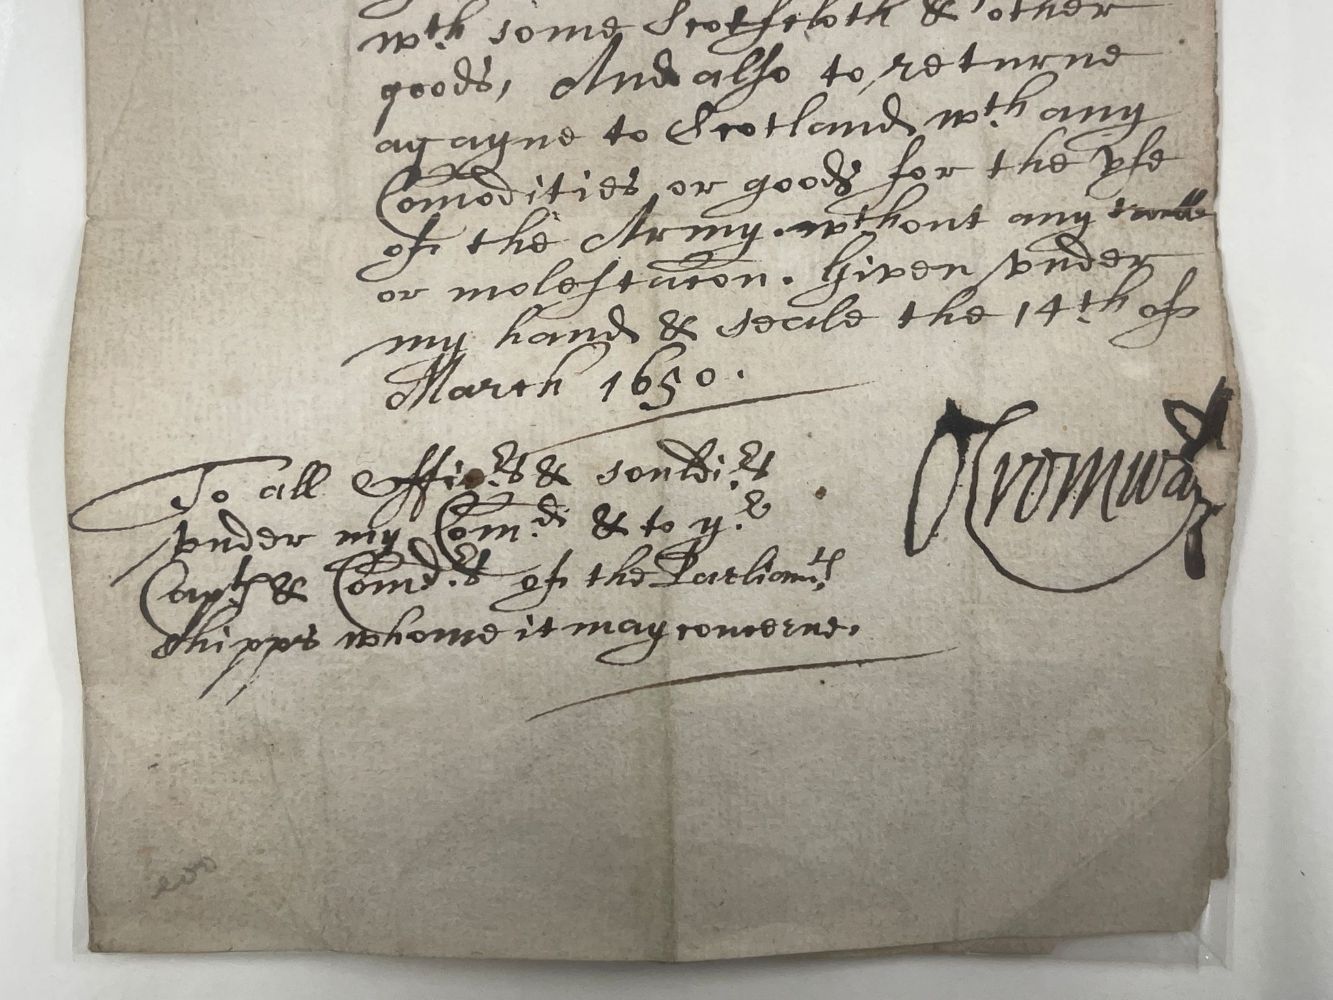 wth some Scotscloth & other
goods, And also to returne
agayne to Scotland wth any
Comodities or goods for the vse
of the Army. wthout any trouble
or molestacon. Given vnder
my hand & seale the 14th of
March 1650.
OCromwell
To all Officrs & souldirs
vnder my Comd & to ye
Capts & Comdrs of the Parliamts
Shipps whome it may concerne.